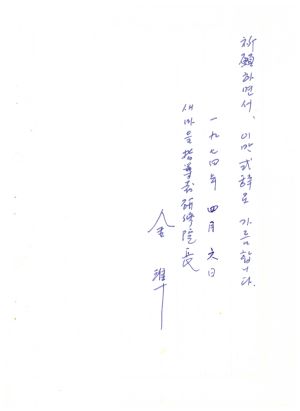 祈願하면서, 이만 式辞로 가름합니다.
一九七四年 四月 六日
새마을指導者研修院長
金 準